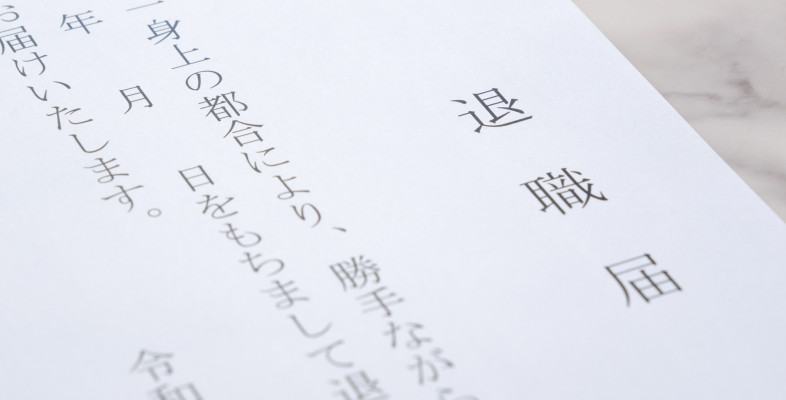 退職届
一身上の都合により、勝手ながら
年 月 日をもちまして退
お届けいたします。
令和